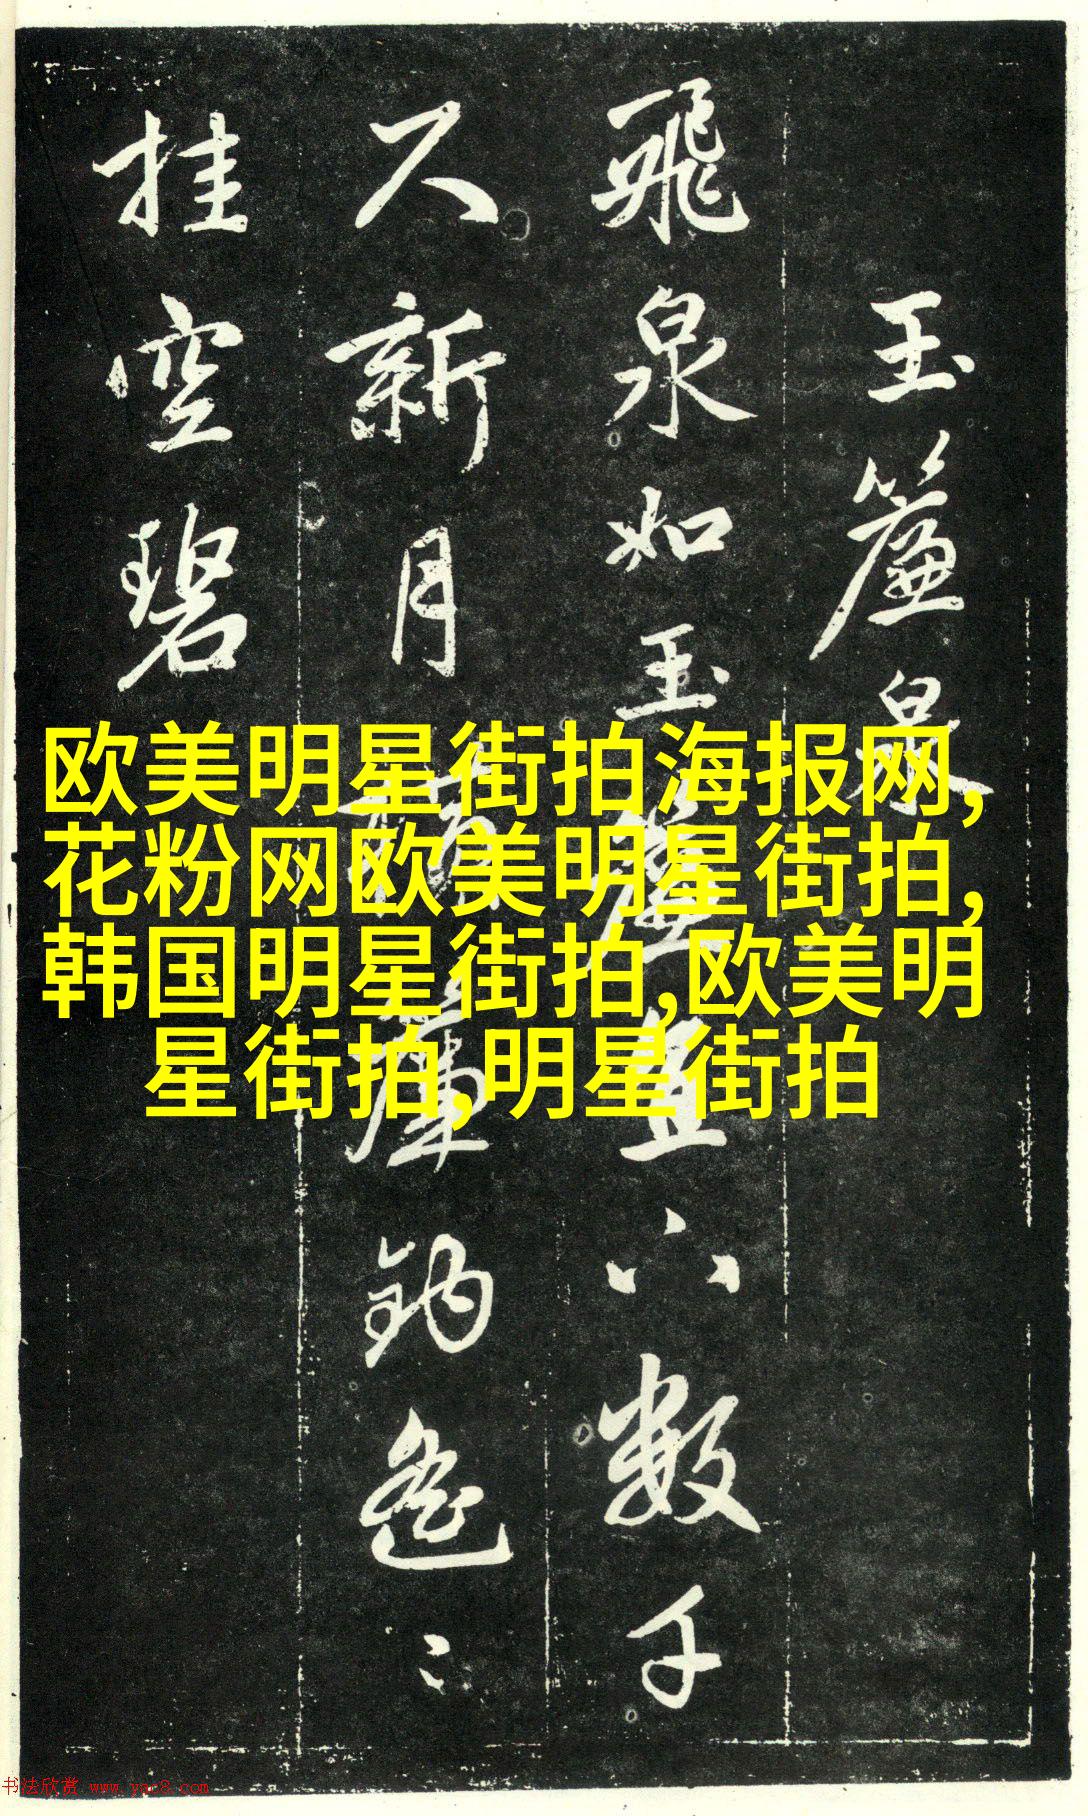 玉簾泉
飛泉如玉簾直下數千
尺新月橫簾鉤遙々
挂空碧
欧美明星街拍海报网,
花粉网欧美明星街拍,
韩国明星街拍,欧美明
星街拍,明星街拍
书法欣赏 www.yac8.com